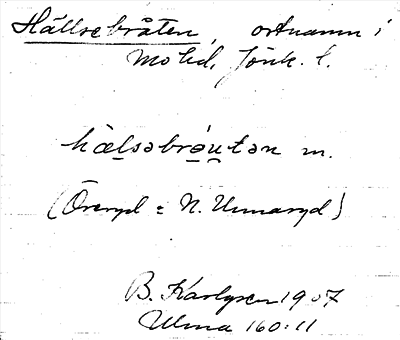 Hällsebråten, ortnamn i
Mo hd, Jönk. l.
hælsəbro̱u̱tən m.
(Öreryd = N. Unnaryd)
B. Karlgren 1907
Ulma 160:11